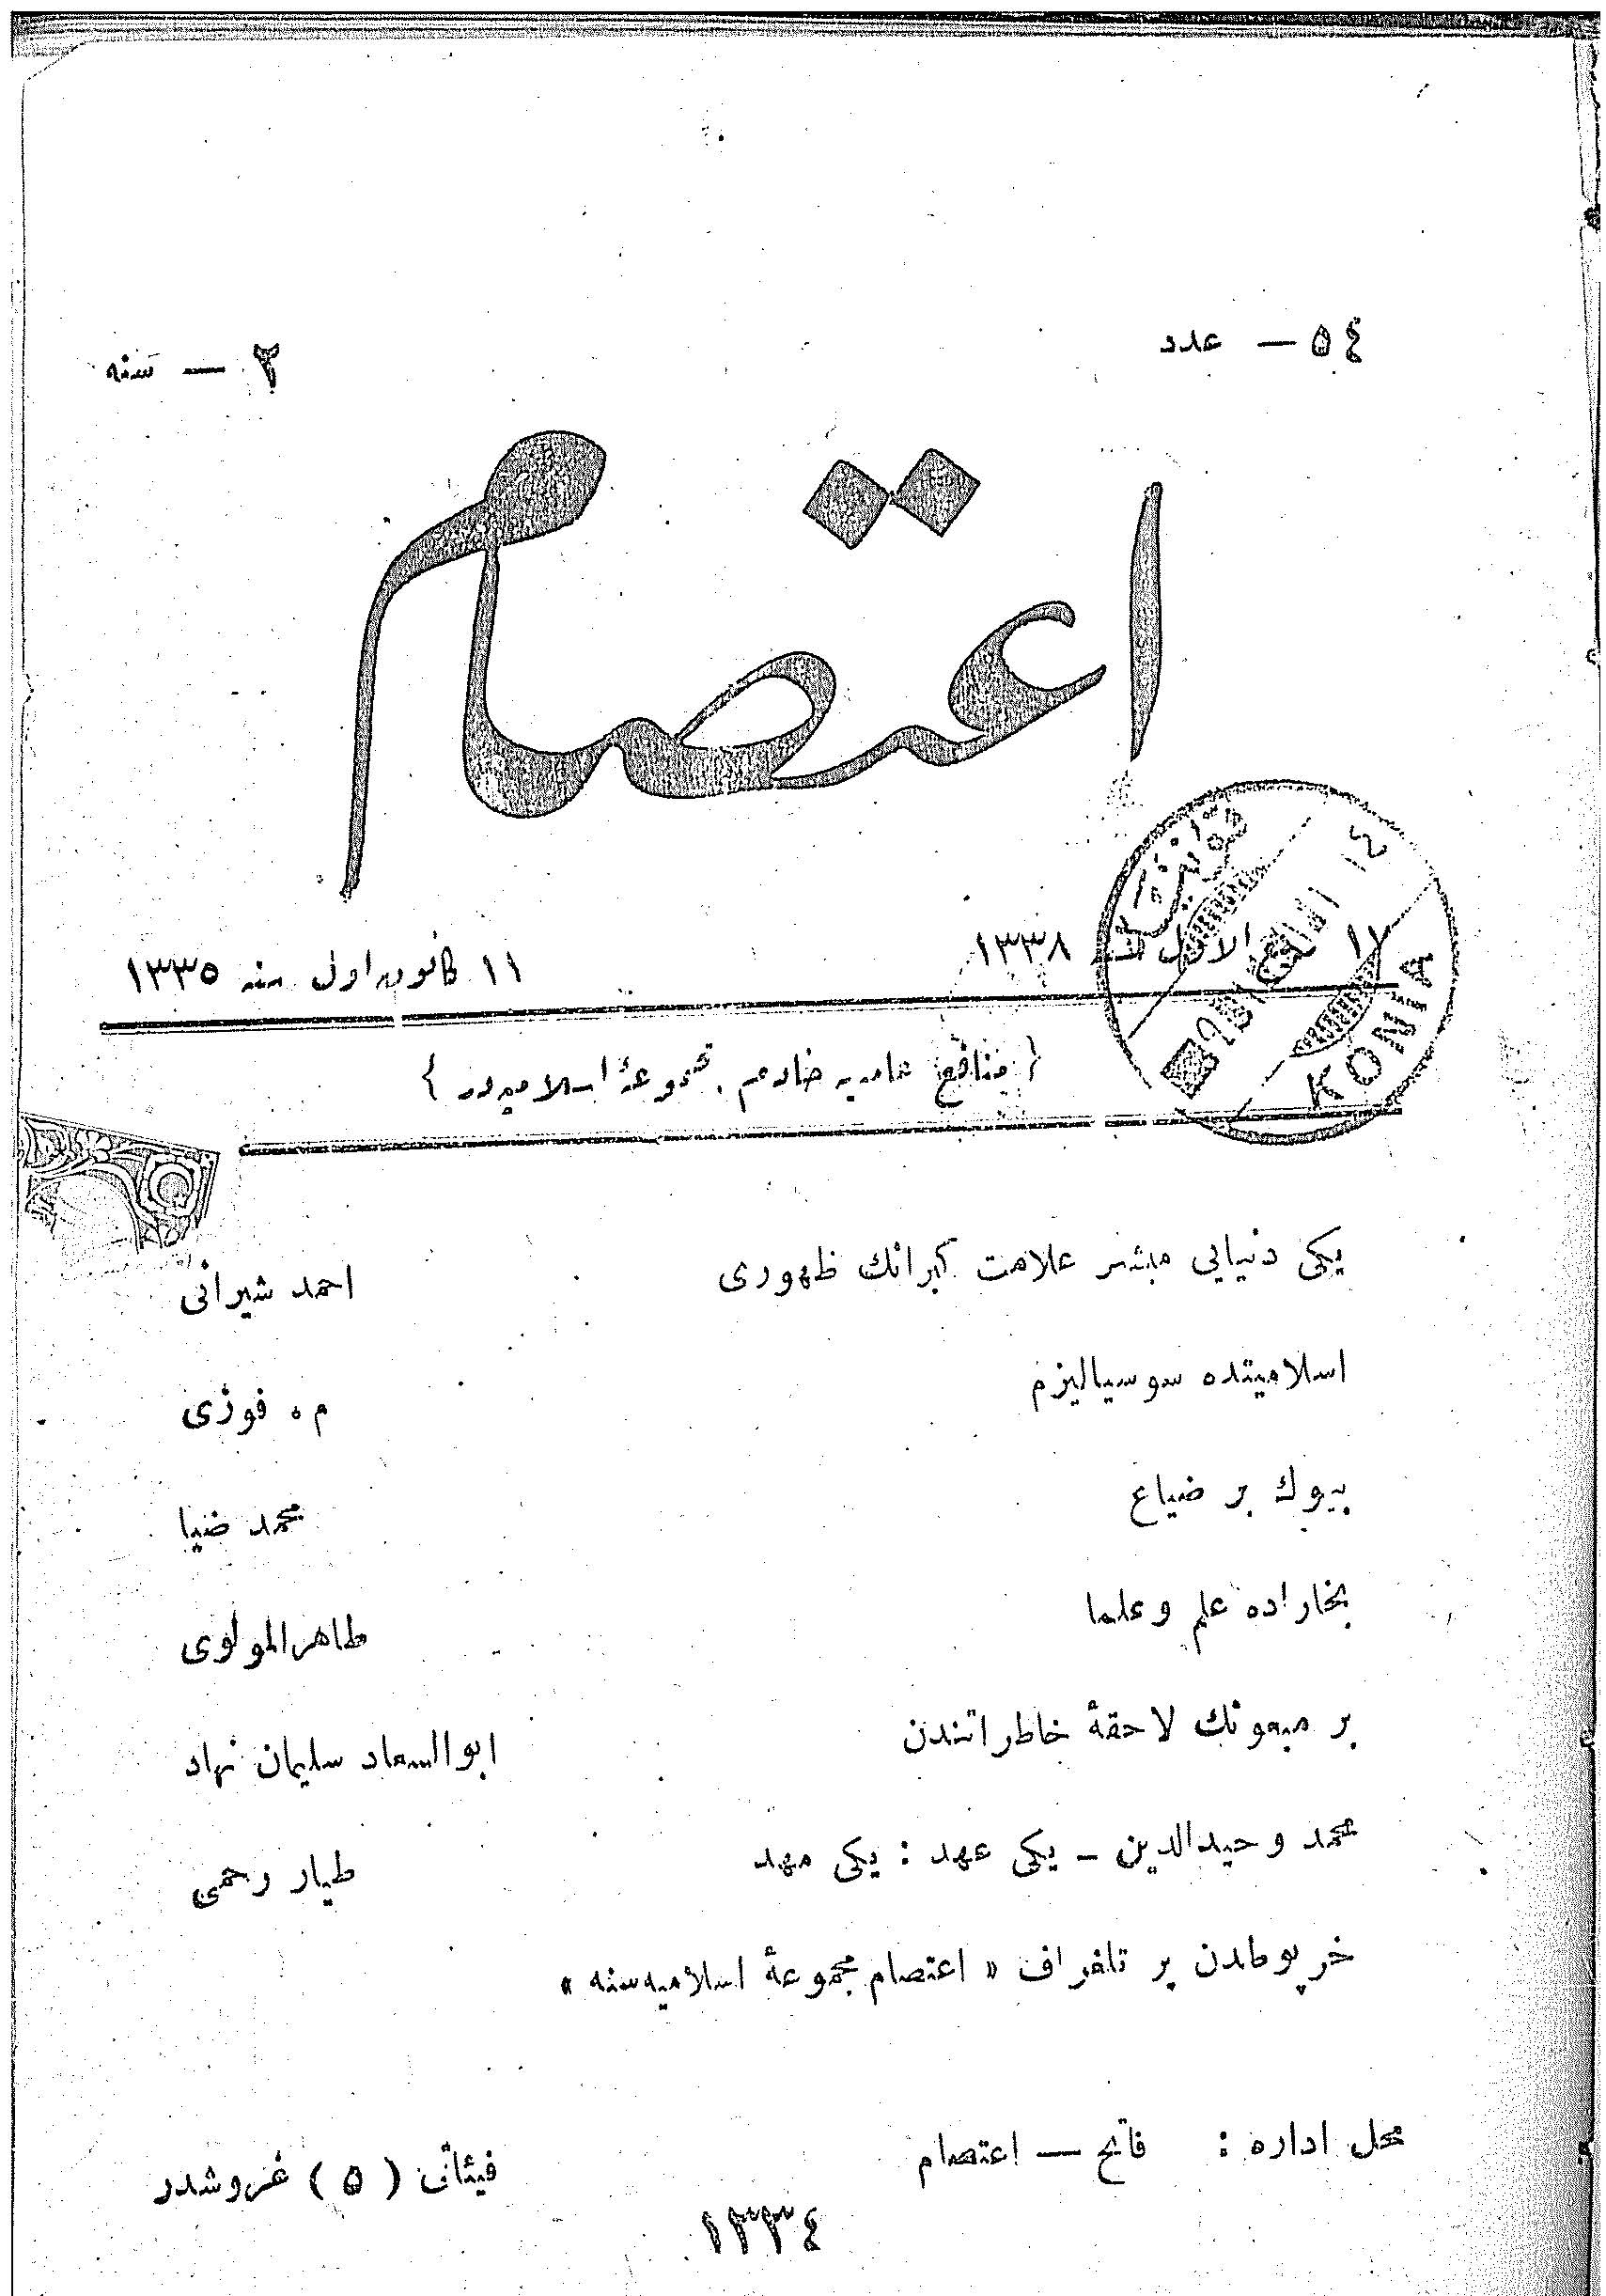 ٥٤ — عدد
٢ — سنه
اعتصام
١٧ الاول سنه ١٣٣٨
١١ كانون اول سنه ١٣٣٥
KONIA
{ منافع عامه‌يه خادم مجموعهٔ اسلاميه‌در }
يكی دنيايی مبشر علامت كبرانك ظهوری
احمد شيرانی
اسلاميتده سوسياليزم
م. فوزی
بيوك بر ضياع
محمد ضيا
بخاراده علم وعلما
طاهرالمولوی
بر مبعوثك لاحقهٔ خاطراتندن
ابوالسعاد سليمان نهاد
محمد وحيدالدين – يكی عهد : يكی مهد
طيار رحمی
خرپوطدن بر تلغراف « اعتصام مجموعهٔ اسلاميه‌سنه »
محل اداره : فاتح — اعتصام
فيئاتی ( ٥ ) غروشدر
١٣٣٤